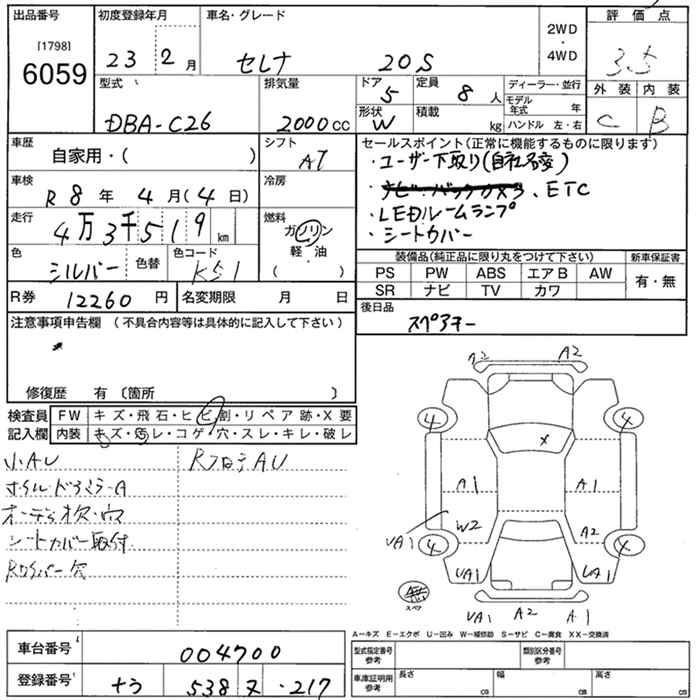 出品番号 初度登録年月 車名・グレード 2WD ・ 4WD 評価点
[1798] 6059 23 2月 セレナ 20S 3.5
型式 排気量 ドア 5 定員 8人 ディーラー・並行 外装 内装
DBA-C26 2000cc 形状 W 積載 kg モデル年式 年 C B
ハンドル 左・右
車歴 自家用・( ) シフト AT セールスポイント(正常に機能するものに限ります)
・ユーザー下取り(自社名変)
車検 R8年 4月(4日) 冷房 、ETC
・LEDルームランプ
走行 4万3千519km 燃料 ガソリン 軽・油 ( ) ・シートカバー
色 シルバー 色替 色コード K51 装備品(純正品に限り丸をつけて下さい) 新車保証書
PS PW ABS エアB AW 有・無
SR ナビ TV カワ
R券 12260円 名変期限 月 日 後日品
スペアキー
注意事項申告欄 (不具合内容等は具体的に記入して下さい)
修復歴 有 〔箇所 〕
検査員 FW キズ・飛石・ヒビ割・リペア跡・X要
記入欄 内装 キズ・汚レ・コゲ・穴・スレ・キレ・破レ
小AU
シートカバー取付
A2 A2
4 4
X
A1 A1
W2 A2
UA1
4
UA1 UA1
スペア UA1 A2 A1
A-キズ E-エクボ U-凹み W-補修跡 S-サビ C-腐食 XX-交換済
車台番号 004700 型式指定番号 参考 類別区分番号 参考
登録番号 なら 538 ヌ ・217 車庫証明用 参考 長さ cm 幅 cm 高さ cm